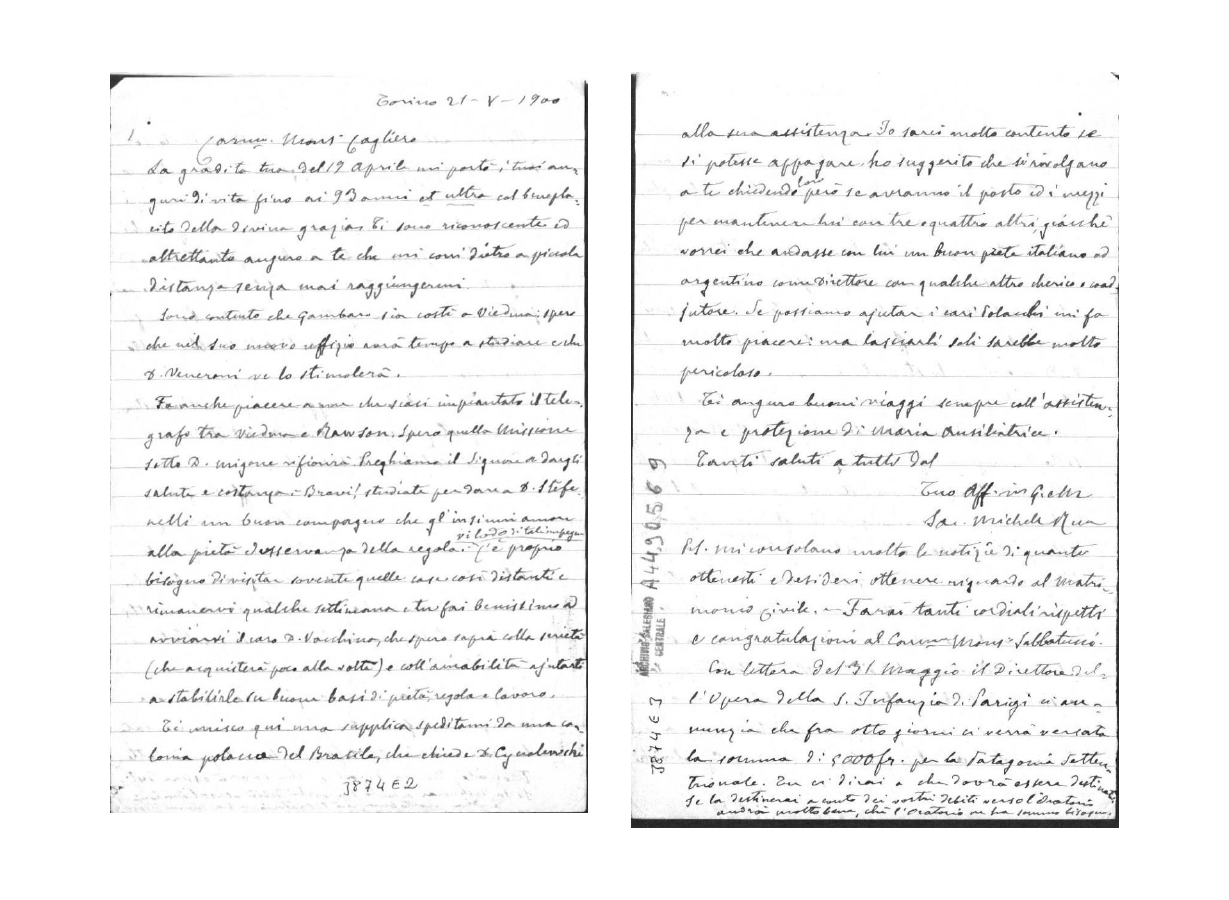 Torino 21 - V - 1900
1.
Carmo. Mons Cagliero
La gradita tua del 19 Aprile mi portò i tuoi au-
guri di vita fino ai 93 anni et ultra col benepla-
cito della divina grazia. Ti sono riconoscente ed
altrettanto auguro a te che mi corri dietro a piccola
distanza senza mai raggiungermi.
Sono contento che Gambaro sia costì a Viedma: spero
che nel suo nuovo uffizio avrà tempo a studiare e che
D. Veneroni ve lo stimolerà.
Fa anche piacere a noi che siasi impiantato il tele-
grafo tra Viedma e Rawson. Spero quella Missione
sotto D. Migone rifiorirà. Preghiamo il Signore a dargli
salute e costanza. Bravi! studiate per dare a D. Stefe-
nelli un buon compagno che gl'insinui amore
alla pietà ed osservanza della regola. C'è proprio
vi lodo di tale impegno
bisogno di visitar sovente quelle case così distanti e
rimanervi qualche settimana e tu fai benissimo ad
avviarvi il caro D. Vacchina, che spero saprà colla serietà
(che acquisterà poco alla volta) e coll'amabilità ajutarti
a stabilirle su buone basi di pietà, regola e lavoro.
Ti unisco qui una supplica speditami da una co-
lonia polacca del Brasile, che chiede D.
3874 E2
alla sua assistenza. Io sarei molto contento se
si potesse appagare. ho suggerito che si rivolgano
a te chiedendo loro però se avranno il posto ed i mezzi
per mantenere lui con tre o quattro altri, giacchè
vorrei che andasse con lui un buon prete italiano od
argentino come Direttore con qualche altro chierico e coad-
jutore. Se possiamo ajutar i cari Polacchi mi fa
molto piacere: ma lasciarli soli sarebbe molto
pericoloso.
Ti auguro buoni viaggi sempre coll'assisten-
za e protezione di Maria Ausiliatrice.
Tanti saluti a tutti dal
Tuo Aff. in G. e M.
Sac. Michele Rua
P.S. mi consolano molto le notizie di quanto
ottenesti e desideri ottenere riguardo al matri-
monio civile. - Farai tanti cordiali rispetti
e congratulazioni al Carmo Mons Sabbatucci.
Con lettera del 31 Maggio il Direttore del-
l'Opera della S. Infanzia di Parigi ci an-
nunzia che fra otto giorni ci verrà versata
la somma di 5000 fr. per la Patagonia Setten-
trionale. Tu ci dirai a che dovrà essere destinata
Se la destinerai a conto dei vostri debiti verso l'Oratorio
andrà molto bene, chè l'Oratorio ne ha sommo bisogno.
3874 E3
ARCHIVIO SALESIANO
CENTRALE
A4490569